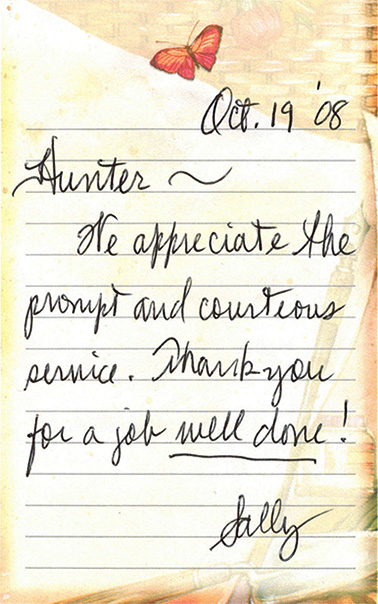 Oct. 19 '08
Hunter ~
We appreciate the
prompt and courteous
service. Thank you
for a job well done!
Sally